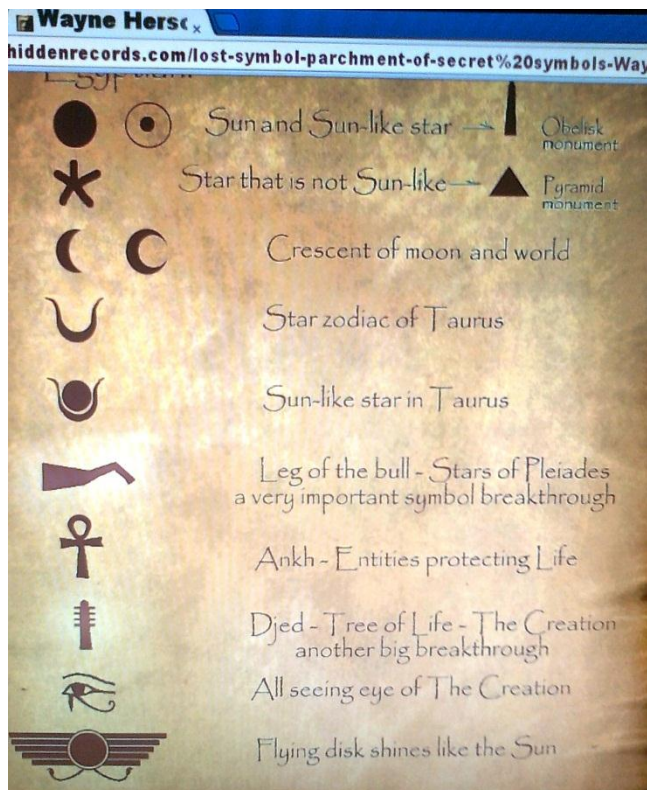 Wayne Hersc
hiddenrecords.com/lost-symbol-parchment-of-secret%20symbols-Way
Egyptian
Sun and Sun-like star
Obelisk
monument
Star that is not Sun-like
Pyramid
monument
Crescent of moon and world
Star zodiac of Taurus
Sun-like star in Taurus
Leg of the bull - Stars of Pleiades
a very important symbol breakthrough
Ankh - Entities protecting Life
Djed - Tree of Life - The Creation
another big breakthrough
All seeing eye of The Creation
Flying disk shines like the Sun